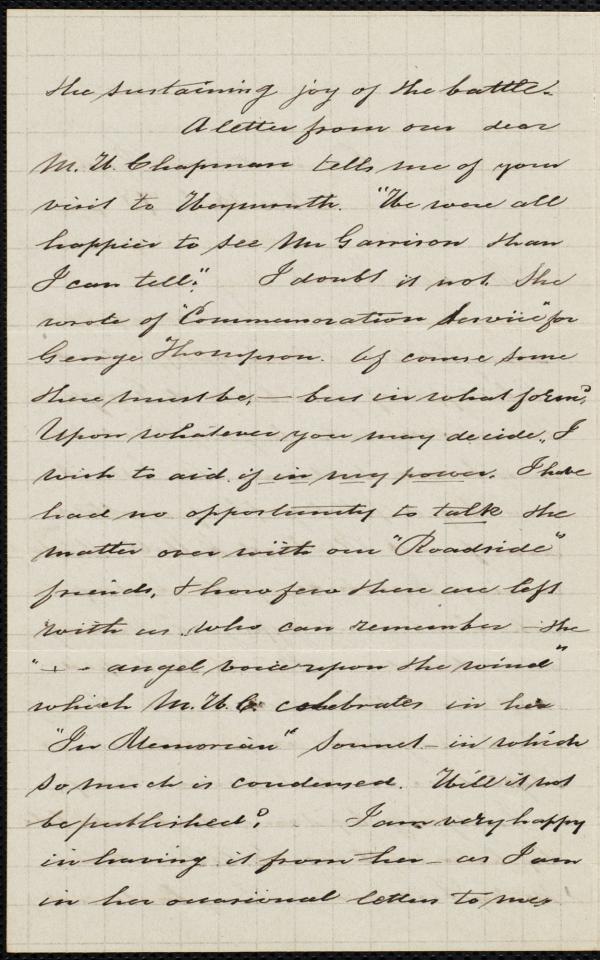 the sustaining joy of the battle.
A letter from our dear
M. W. Chapman tells me of your
visit to Weymouth. "We were all
happier to see Mr Garrison than
I can tell." I doubt it not. She
wrote of "Commemoration Service" for
George Thompson. Of course some
there must be, — but in what form?
Upon whatever you may decide, I
wish to aid if in my power. I have
had no opportunity to talk the
matter over with our "Roadside"
friends, & how few there are left
with us who can remember - the
"- - angel voice upon the wind"
which M. W. C. celebrates in her
"In Memoriam" Sonnet - in which
so much is condensed. Will it not
be published? I am very happy
in having it from her - as I am
in her occasional letters to me,